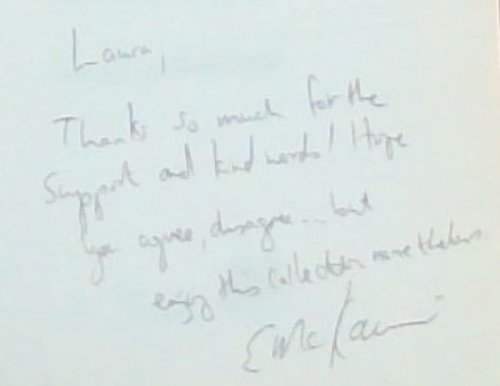 Laura,
Thanks so much for the
Support and kind words! Hope
you agree, disagree... but
enjoy this collection nonetheless